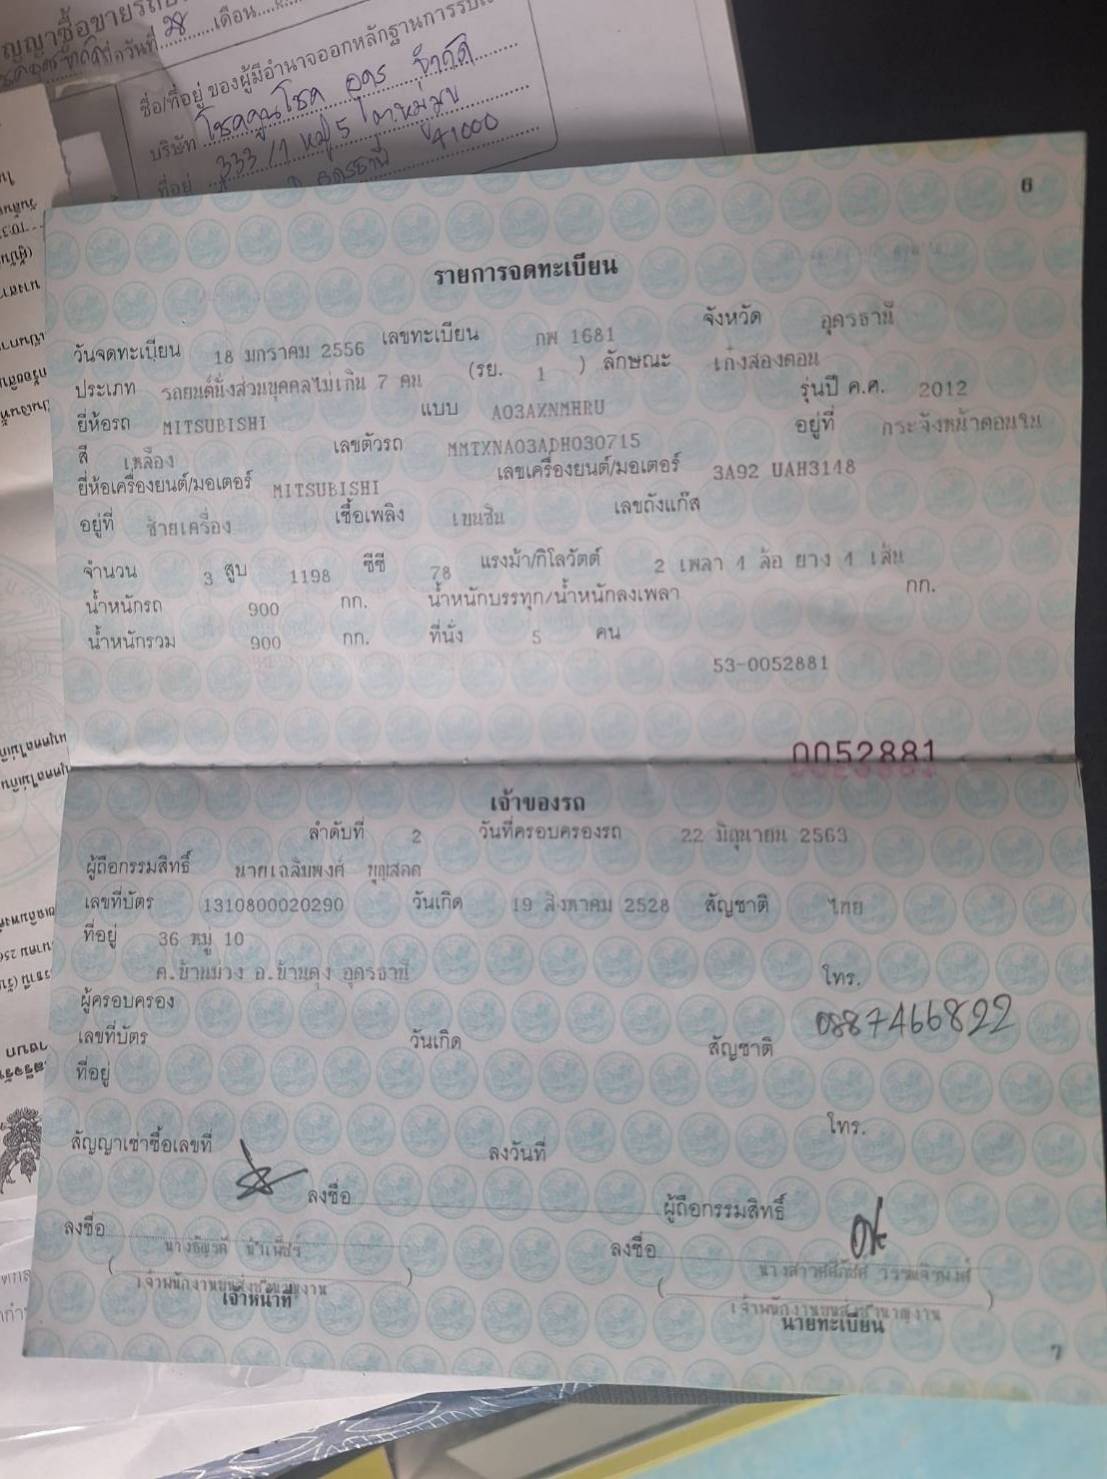 ชื่อ/ที่อยู่ ของผู้มีอำนาจออกหลักฐานการรับเงิน
บริษัท โชคคูนโชค อุดร จำกัด
ที่อยู่ 333/1 หมู่ 5
อุดรธานี 41000
6
รายการจดทะเบียน
วันจดทะเบียน 18 มกราคม 2556 เลขทะเบียน กพ 1681 จังหวัด อุดรธานี
ประเภท รถยนต์นั่งส่วนบุคคลไม่เกิน 7 คน (รย. 1 ) ลักษณะ เก๋งสองตอน
ยี่ห้อรถ MITSUBISHI แบบ A03AXNMHRU รุ่นปี ค.ศ. 2012
สี เหลือง เลขตัวรถ MMTXNA03ADH030715 อยู่ที่ กระจังหน้าตอนใน
ยี่ห้อเครื่องยนต์/มอเตอร์ MITSUBISHI เลขเครื่องยนต์/มอเตอร์ 3A92 UAH3148
อยู่ที่ ซ้ายเครื่อง เชื้อเพลิง เบนซิน เลขถังแก๊ส
จำนวน 3 สูบ 1198 ซีซี 78 แรงม้า/กิโลวัตต์ 2 เพลา 4 ล้อ ยาง 4 เส้น
น้ำหนักรถ 900 กก. น้ำหนักบรรทุก/น้ำหนักลงเพลา กก.
น้ำหนักรวม 900 กก. ที่นั่ง 5 คน
53-0052881
0052881
เจ้าของรถ
ลำดับที่ 2 วันที่ครอบครองรถ 22 มิถุนายน 2563
ผู้ถือกรรมสิทธิ์ นายเฉลิมพงศ์ บุญสอด
เลขที่บัตร 1310800020290 วันเกิด 19 สิงหาคม 2528 สัญชาติ ไทย
ที่อยู่ 36 หมู่ 10
ต.บ้านม่วง อ.บ้านดุง อุดรธานี โทร.
ผู้ครอบครอง 0887466822
เลขที่บัตร วันเกิด สัญชาติ
ที่อยู่
โทร.
สัญญาเช่าซื้อเลขที่ ลงวันที่
ลงชื่อ ผู้ถือกรรมสิทธิ์
ลงชื่อ ลงชื่อ
(เจ้าพนักงานขนส่งชำนาญงาน) (เจ้าพนักงานขนส่งชำนาญงาน)
เจ้าหน้าที่ นายทะเบียน
7